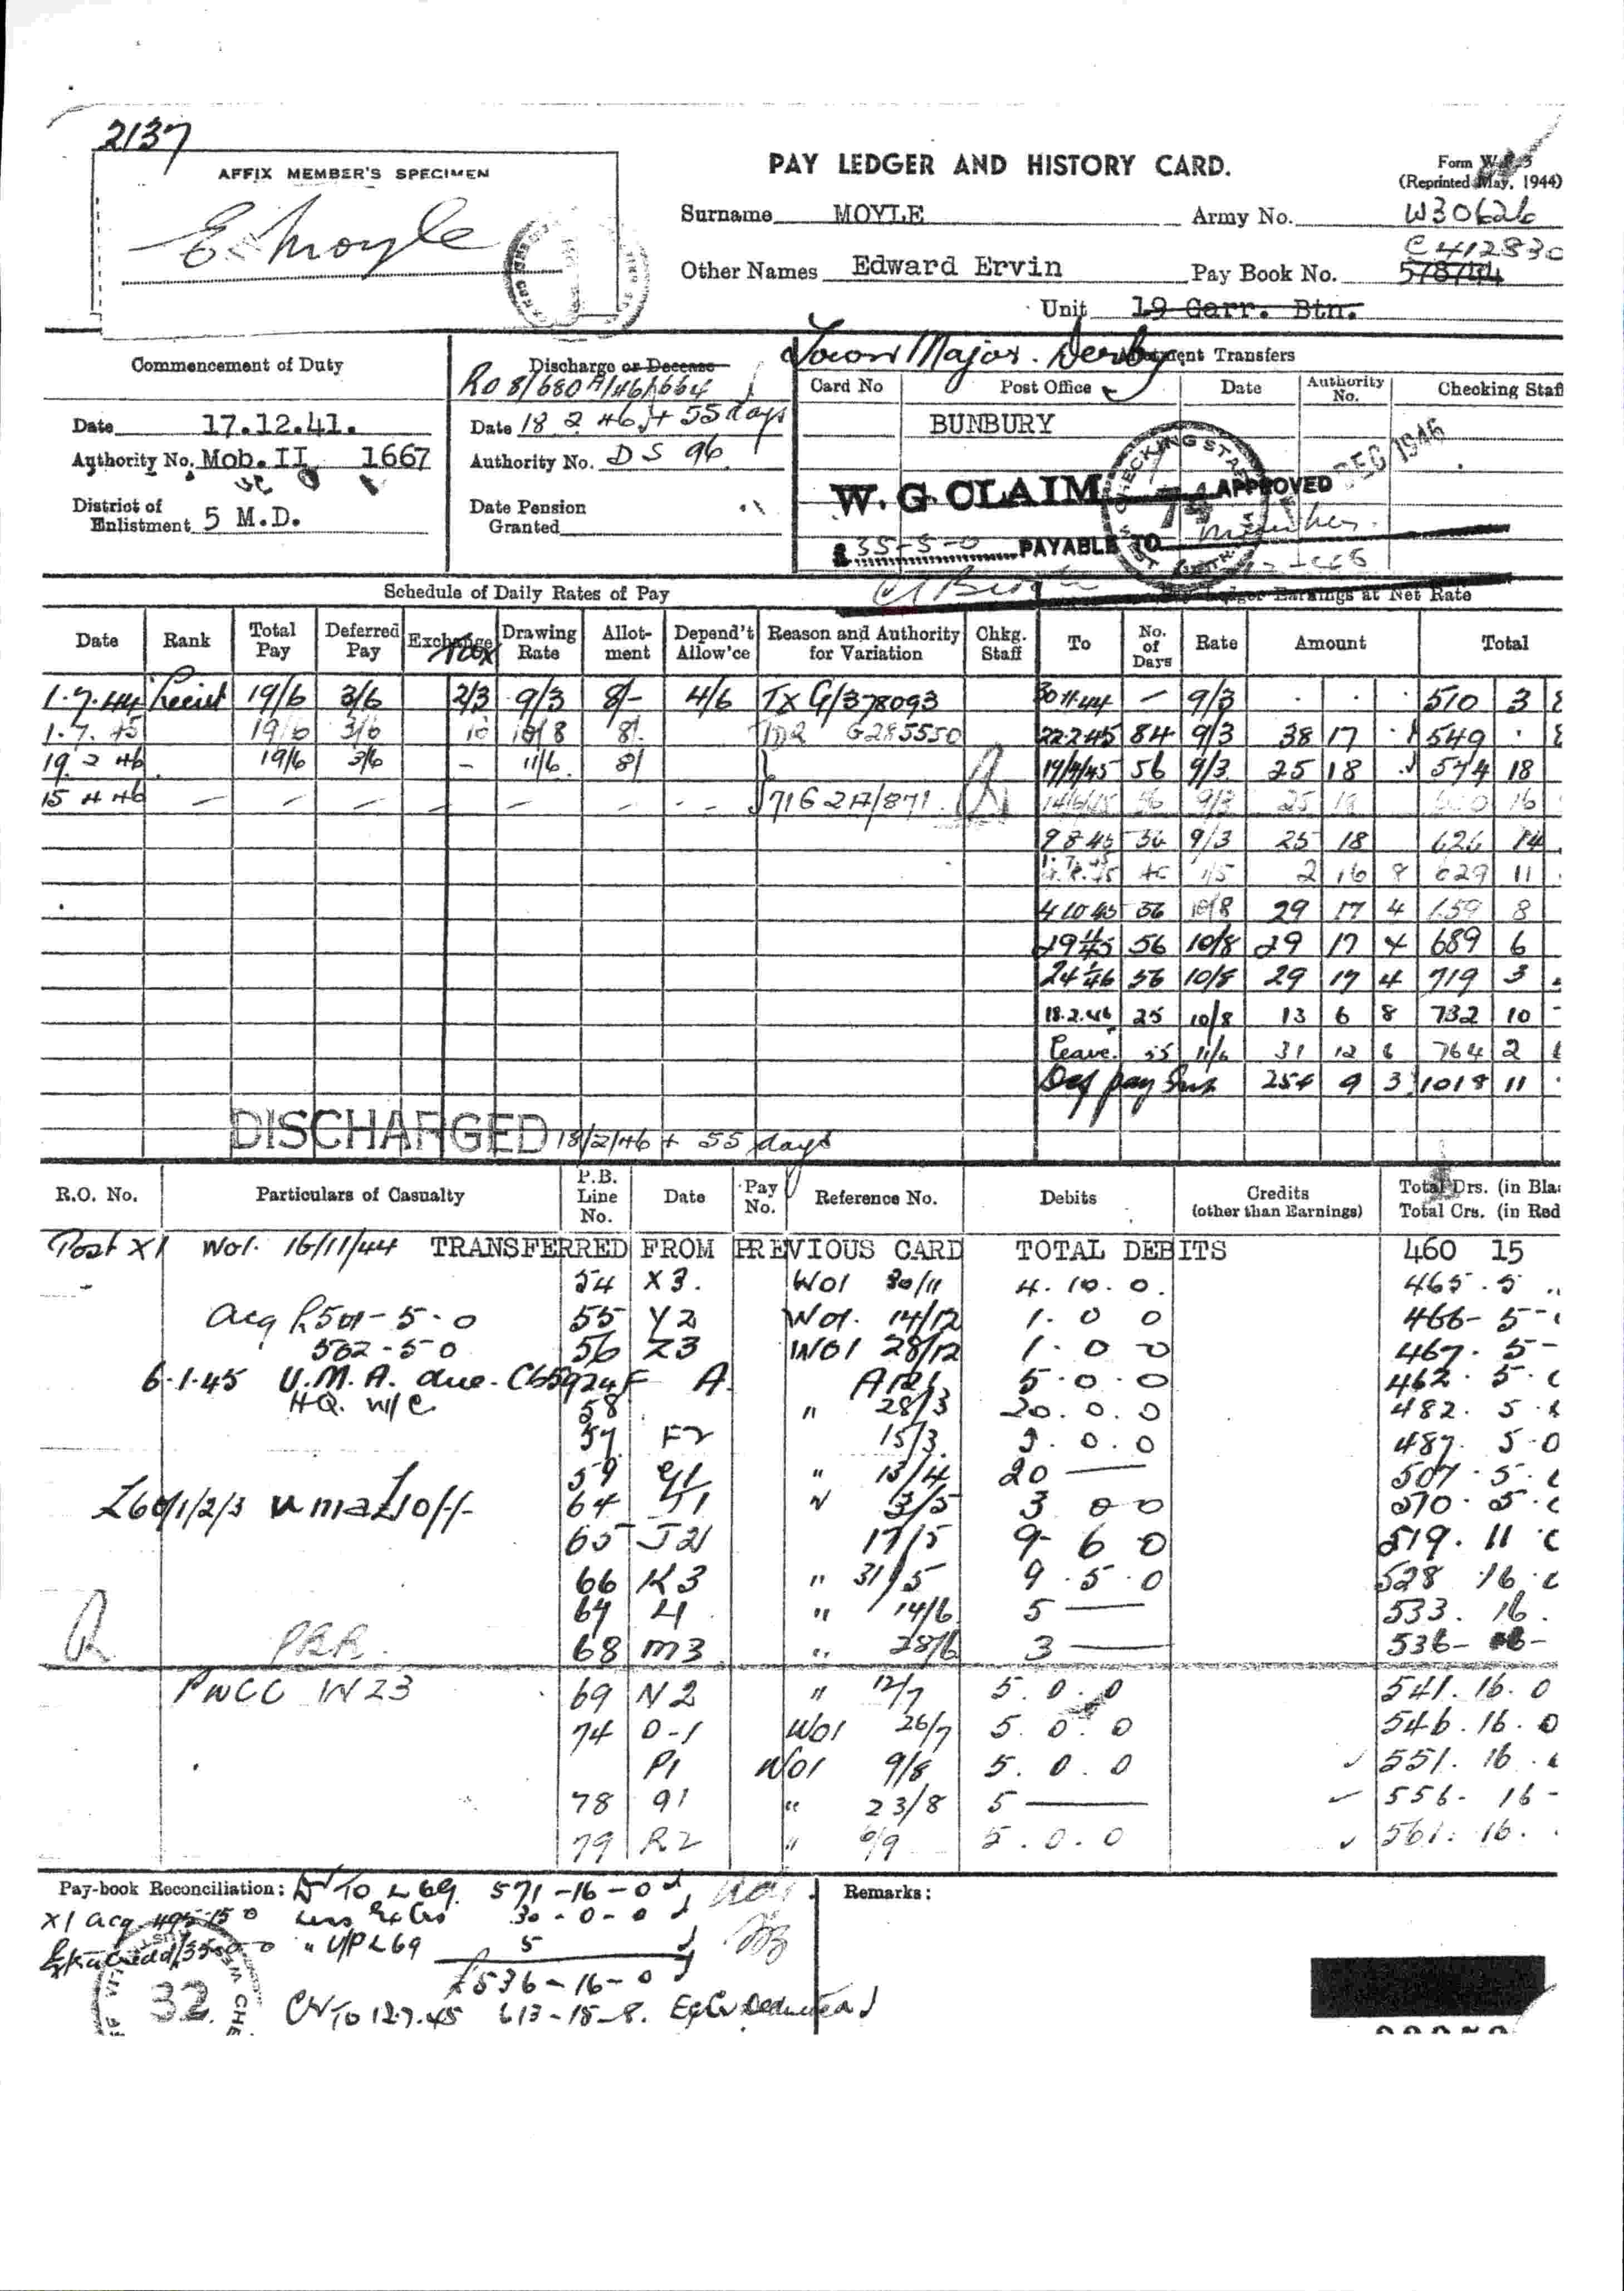 2137
AFFIX MEMBER'S SPECIMEN
E E Moyle
PAY LEDGER AND HISTORY CARD.
Form
(Reprinted May, 1944)
Surname MOYLE Army No. W30626
C412830
Other Names Edward Ervin Pay Book No. 578744
Unit 19 Garr. Btn.
Town Major. Derby
Commencement of Duty
Date 17.12.41.
Authority No. Mob. II 1667
District of
Enlistment 5 M.D.
Discharge or Decease
RO 8/680A/46/664
Date 18 2 46 + 55 days
Authority No. DS 96
Date Pension
Granted
Allotment Transfers
Card No Post Office Date Authority No. Checking Staff
BUNBURY
CHECKING STAFF
DEC 1946
W. G. CLAIM APPROVED
£ 35-5-0 PAYABLE TO Member.
Schedule of Daily Rates of Pay
Pay Ledger Earnings at Net Rate
Date Rank Total Pay Deferred Pay Exchange Tax Drawing Rate Allot-ment Depend't Allow'ce Reason and Authority for Variation Chkg. Staff To No. of Days Rate Amount Total
1.7.44 Lieut 19/6 3/6 2/3 9/3 8/- 4/6 TX G/378093 30.11.44 — 9/3 510 3 8
1.7.45 19/6 3/6 10 10/8 8/- IDR G285550 22.2.45 84 9/3 38 17 549
19 2 46 19/6 3/6 - 11/6 8/ 19/4/45 56 9/3 25 18 574 18
15 4 46 — — — — — — — — 716 2A/871 14/6/45 56 9/3 25 18 600 16
9 8 45 56 9/3 25 18 626 14
40 1/5 2 16 8 629 11
4 10 45 56 10/8 29 17 4 659 8
29 11 45 56 10/8 29 17 4 689 6
24 1 46 56 10/8 29 17 4 719 3
18.2.46 25 10/8 13 6 8 732 10
Leave. 55 11/6 31 12 6 764 2
Def pay 254 9 3 1018 11
DISCHARGED 18/2/46 + 55 days
R.O. No. Particulars of Casualty P.B. Line No. Date Pay No. Reference No. Debits Credits (other than Earnings) Total Drs. (in Bla
Total Crs. (in Red
Post X1 W01. 16/11/44 TRANSFERRED FROM PREVIOUS CARD TOTAL DEBITS 460 15
54 X3. W01 30/11 4. 10. 0. 465. 5
Acq L501-5-0 55 Y2 W01. 14/12 1. 0 0 466- 5-
562-5-0 56 Z3 W01 28/12 1. 0 0 467. 5-
6.1.45 U.M.A. due. C65924F A. 5.0.0 462. 5.
HQ. W/C 58 " 28/3 20.0.0 482. 5.
57 F2 15/3 5.0.0 487. 5-0
59 G1 " 13/4 20 — 507. 5.
L60/1/2/3 64 " 3/5 3 0 0 510. 5.
65 J2 17/5 9- 6 0 519. 11
66 K3 " 31/5 9.5.0 528 16.
67 L1 " 14/6 5 — 533. 16.
PRR. 68 M3 " 28/6 3 — 536- 16-
PWCC W23 69 N2 " 12/7 5.0.0 541. 16. 0
74 O-1 W01 26/7 5. 0. 0 546. 16. 0
P1 W01 9/8 5. 0. 0 551. 16.
78 Q1 " 23/8 5 — 556- 16-
79 R2 " 6/9 5.0.0 561. 16.
Pay-book Reconciliation: Dr To L 69. 571-16-0
X1 acq 495-15 0 Less Ex Crs 30-0-0
" U/P L69 5
£536-16-0
32
Cr To 12.7.45 613-18-8. Ex Cr Deducted
Remarks: